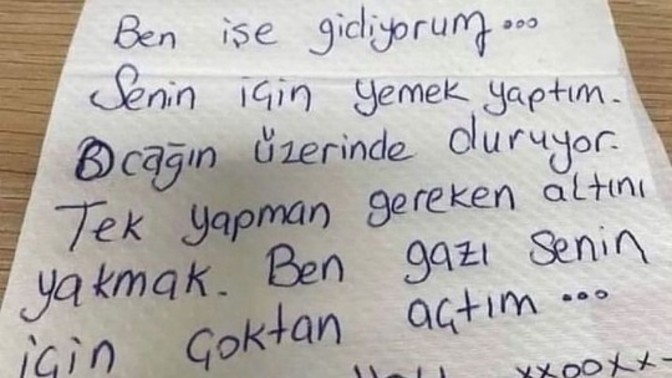 Ben işe gidiyorum...
Senin için yemek yaptım.
Ocağın üzerinde duruyor.
Tek yapman gereken altını
yakmak. Ben gazı senin
için çoktan açtım...
xxooxx